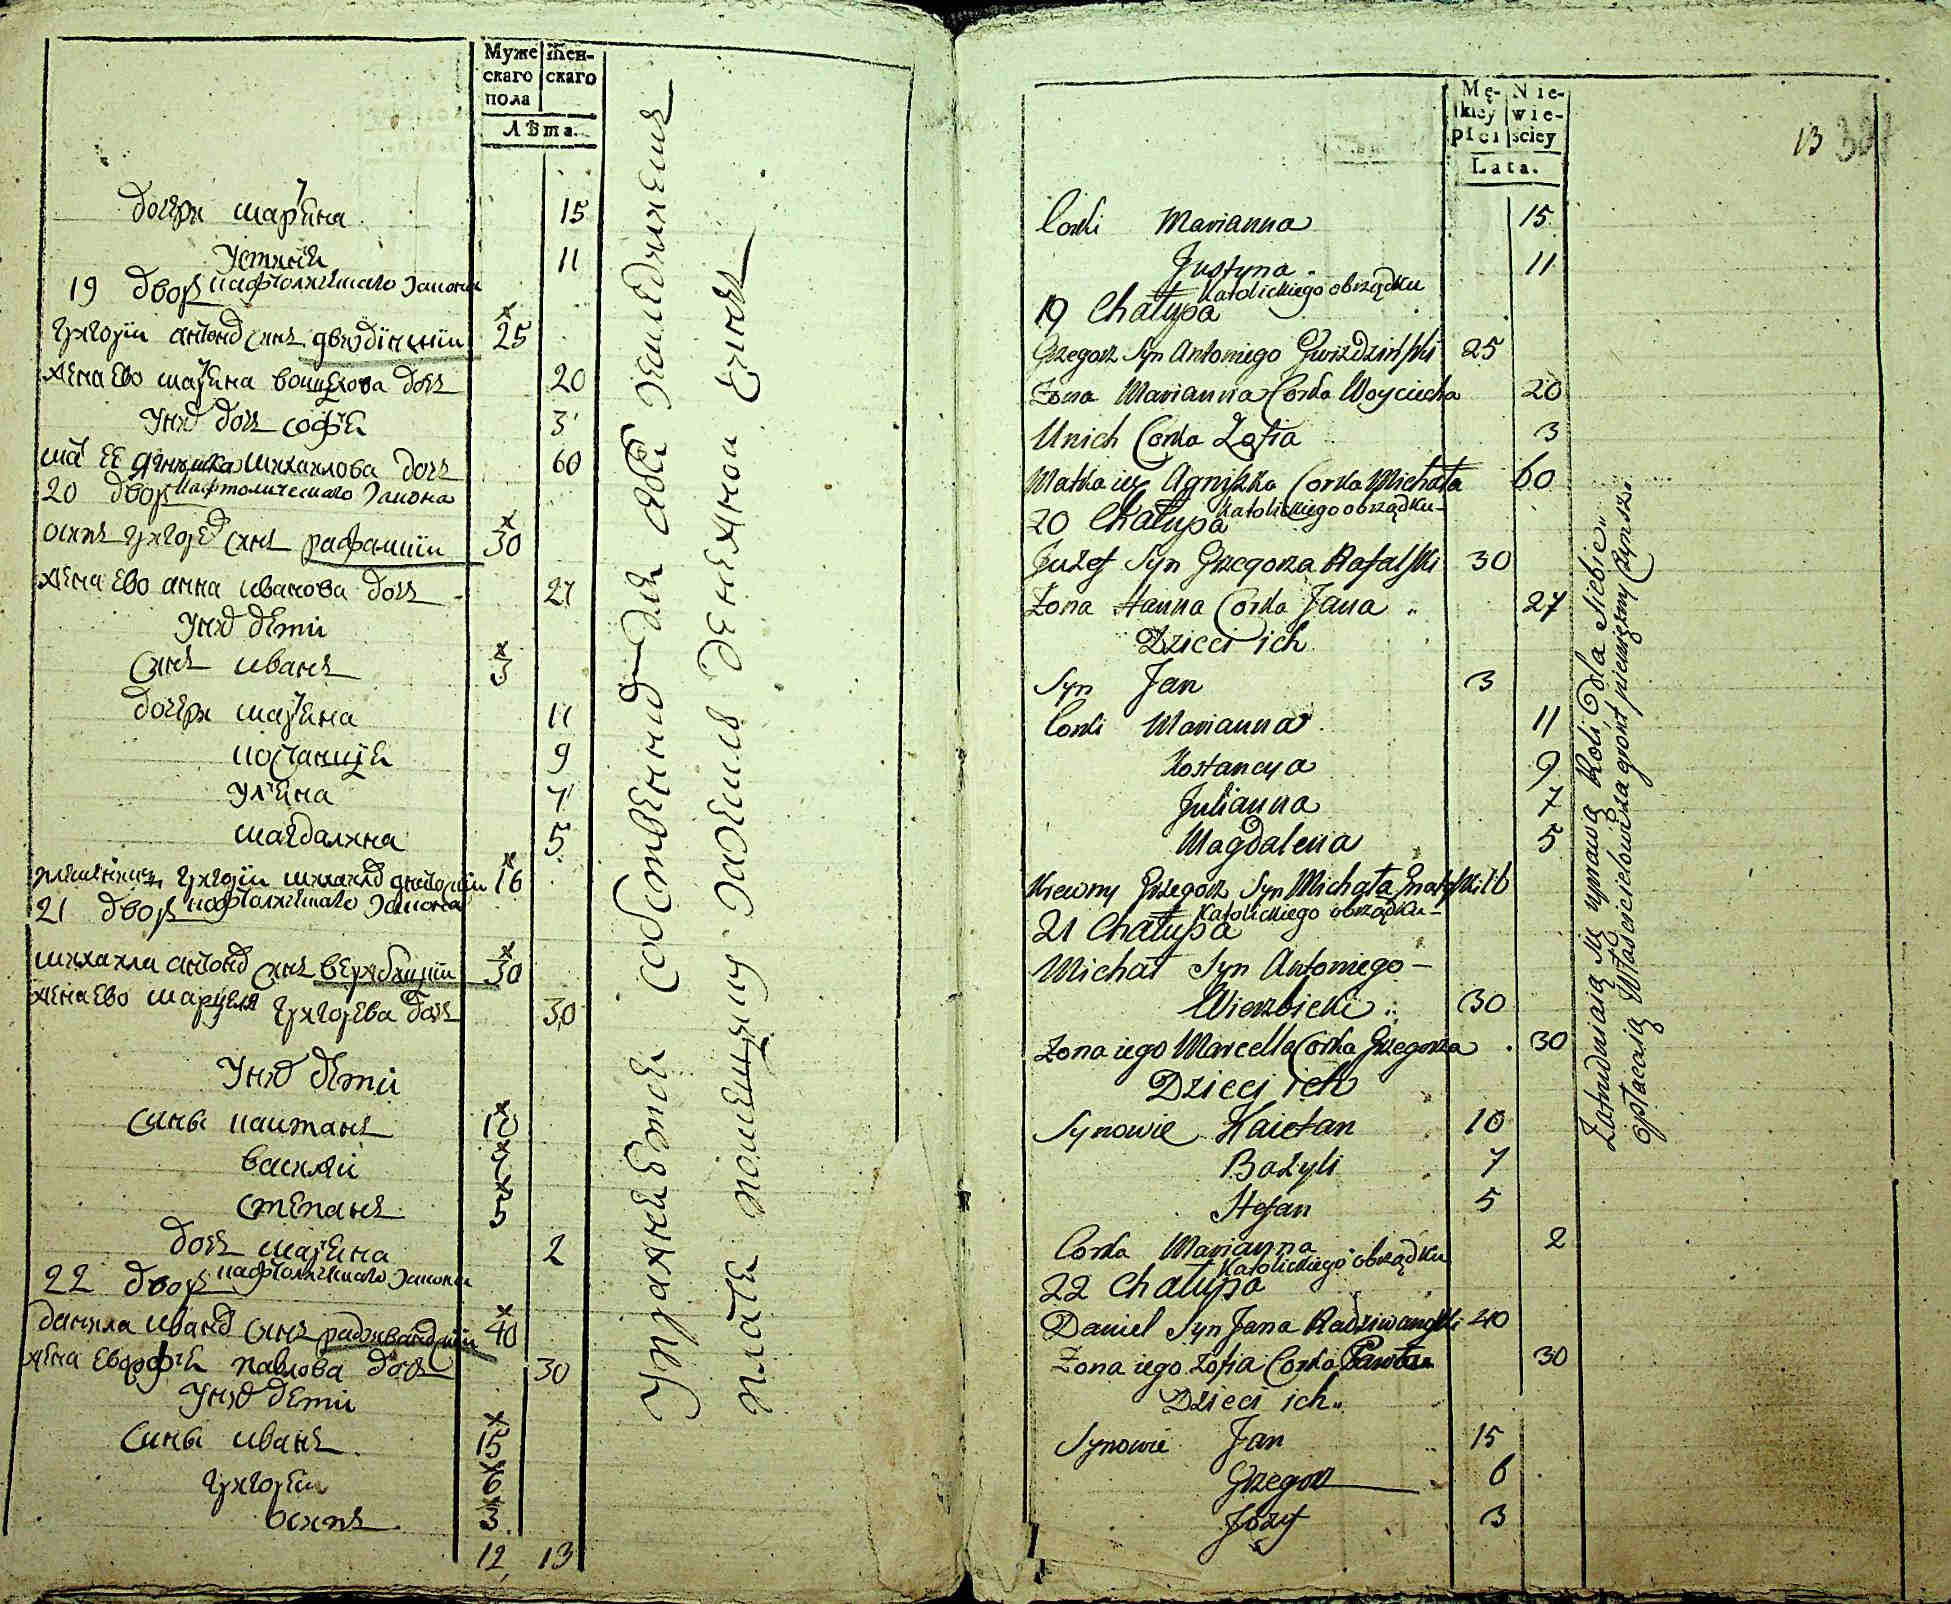 Муже
скаго
пола
Жен-
скаго
Лѣта.
дочери марʼѣна 15
устинѣя 11
19 дворъ кафтолическаго закона
григории антонов синъ гвездинский 25
жена ево марʼѣна войцехова дочъ 20
у них дочъ софʼѣя 3
мат ее агнишка михаилова дочъ 60
20 дворъ кафтолическаго закона
осипъ григоров синъ рафалский 30
жена ево анна иванова дочъ 27
у них дети
синъ иванъ 3
дочери марʼѣна 11
костанцѣя 9
улʼѣна 7
магдалина 5
григории михаилов 16
21 дворъ кафтолическаго закона
михаила антонов синъ вержбицкий 30
жена ево марцеля григорева дочъ 30
у них дети
сины каитанъ 10
василий 7
степанъ 5
дочъ марʼѣна 2
22 дворъ кафтолическаго закона
данила иванов синъ радзивановский 40
жена ево софʼѣя павлова дочъ 30
у них дети
сины иванъ 15
григорей 6
осипъ 3
12 13
упражняются собственно для себя земледелием
плате помещику заземлю денежной чинш
Mę-
skiey
płci
Nie-
wie-
sciey
Lata.
13
Corki Marianna 15
Justyna 11
19 Chałupa Katolickiego obrządku
Grzegorz Syn Antoniego Gwiździński 25
Zona Marianna Corka Woyciecha 20
Unich Corka Zofia 3
Matka iey Agniszka Corka Michała 60
20 Chałupa Katolickiego obrządku
Juzef Syn Grzegorza Rafalski 30
Zona Hanna Corka Jana 27
Dzieci ich
Syn Jan 3
Corki Marianna 11
Kostancya 9
Julianna 7
Magdalena 5
Krewny Grzegorz Syn Michała 16
21 Chałupa Katolickiego obrządku
Michał Syn Antoniego
Wierzbicki 30
Zona iego Marcella Corka Grzegorza 30
Dzieci ich
Synowie Kaietan 10
Bazyli 7
Stefan 5
Corka Marianna 2
22 Chałupa Katolickiego obrządku
Daniel Syn Jana Radziwanoski 40
Zona iego Zofia Corka Pawła 30
Dzieci ich
Synowie Jan 15
Grzegorz 6
Jozef 3
Zatrudniaią się uprawą Roli dla siebie
opłacaią Włascicielowi za gront pieniężny Czynsz